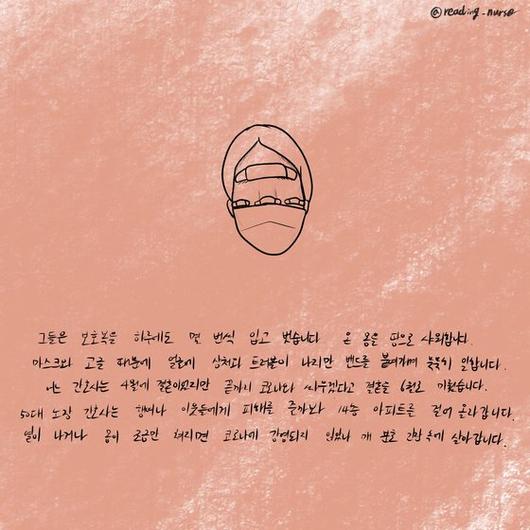 @reading_nurse
그들은 보호복을 하루에도 몇 번씩 입고 벗습니다 온 몸을 땀으로 샤워합니다.
마스크와 고글 때문에 얼굴에 상처와 트러블이 나지만 밴드를 붙여가며 묵묵히 일합니다.
어느 간호사는 4월에 결혼이었지만 끝까지 코로나와 싸우겠다고 결혼을 6월로 미뤘습니다.
50대 노장 간호사는 행여나 이웃들에게 피해를 줄까봐 14층 아파트를 걸어 올라갑니다.
열이 나거나 몸이 조금만 쳐지면 코로나에 감염되지 않았나 매 분초 긴장 속에 살아갑니다.